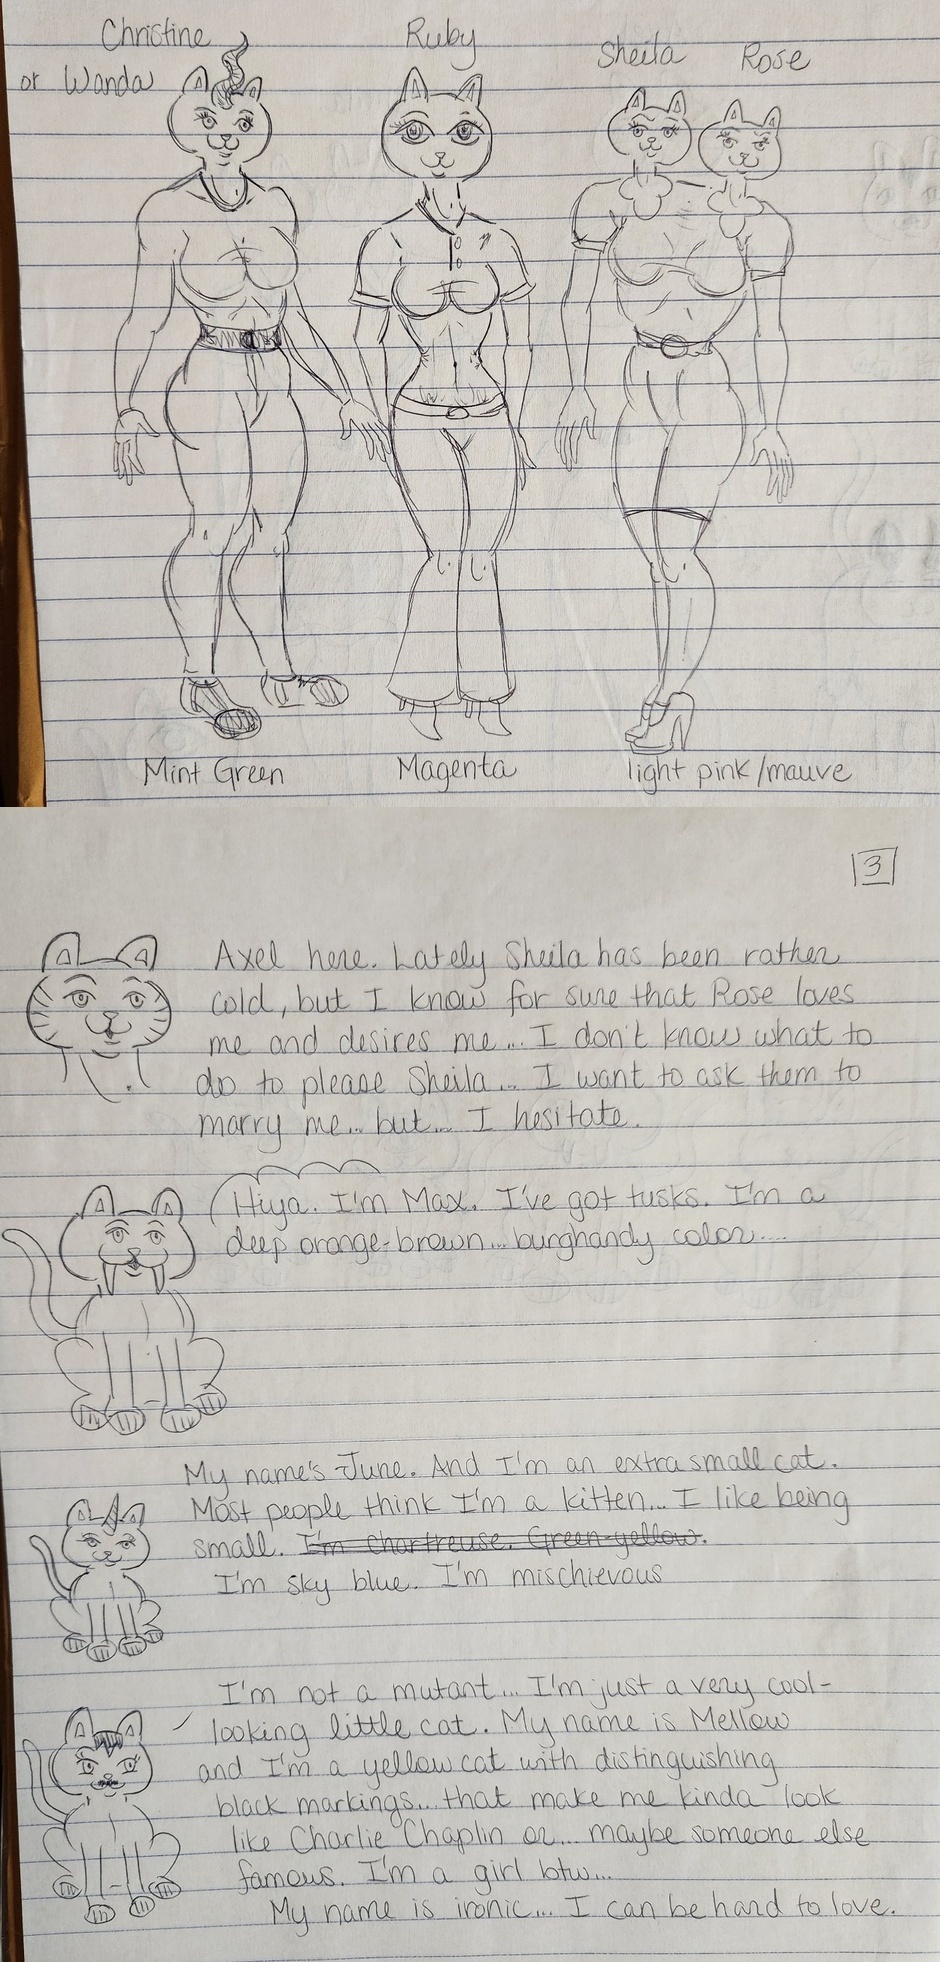 Christine
or Wanda
Ruby
Sheila
Rose
Mint Green
Magenta
light pink/mauve
3
Axel here. Lately Sheila has been rather
cold, but I know for sure that Rose loves
me and desires me... I don't know what to
do to please Sheila... I want to ask them to
marry me... but... I hesitate.
Hiya. I'm Max. I've got tusks. I'm a
deep orange-brown... burghandy color....
My name's June. And I'm an extra small cat.
Most people think I'm a kitten... I like being
small. I'm Chartreuse. Green-yellow.
I'm sky blue. I'm mischievous
I'm not a mutant... I'm just a very cool-
looking little cat. My name is Mellow
and I'm a yellow cat with distinguishing
black markings... that make me kinda look
like Charlie Chaplin or... maybe someone else
famous. I'm a girl btw...
My name is ironic... I can be hard to love.